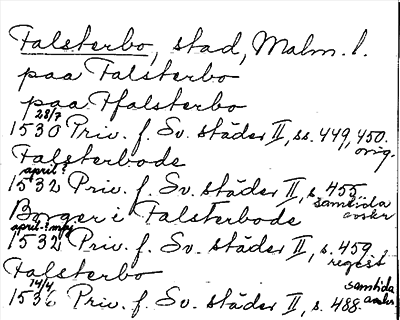 Falsterbo, stad, Malm. l.
paa Falsterbo
paa Ffalsterbo
28/7
1530 Priv. f. Sv. städer II, ss. 449, 450.
orig.
Falsterbode
april?
1532 Priv. f. Sv. städer II, s. 455
samtida avskr
Borger i Falsterbode
april-maj
1532 Priv. f. Sv. städer II, s. 459
regest
Falsterbo
14/4
1536 Priv. f. Sv. städer II, s. 488.
samtida avskr.